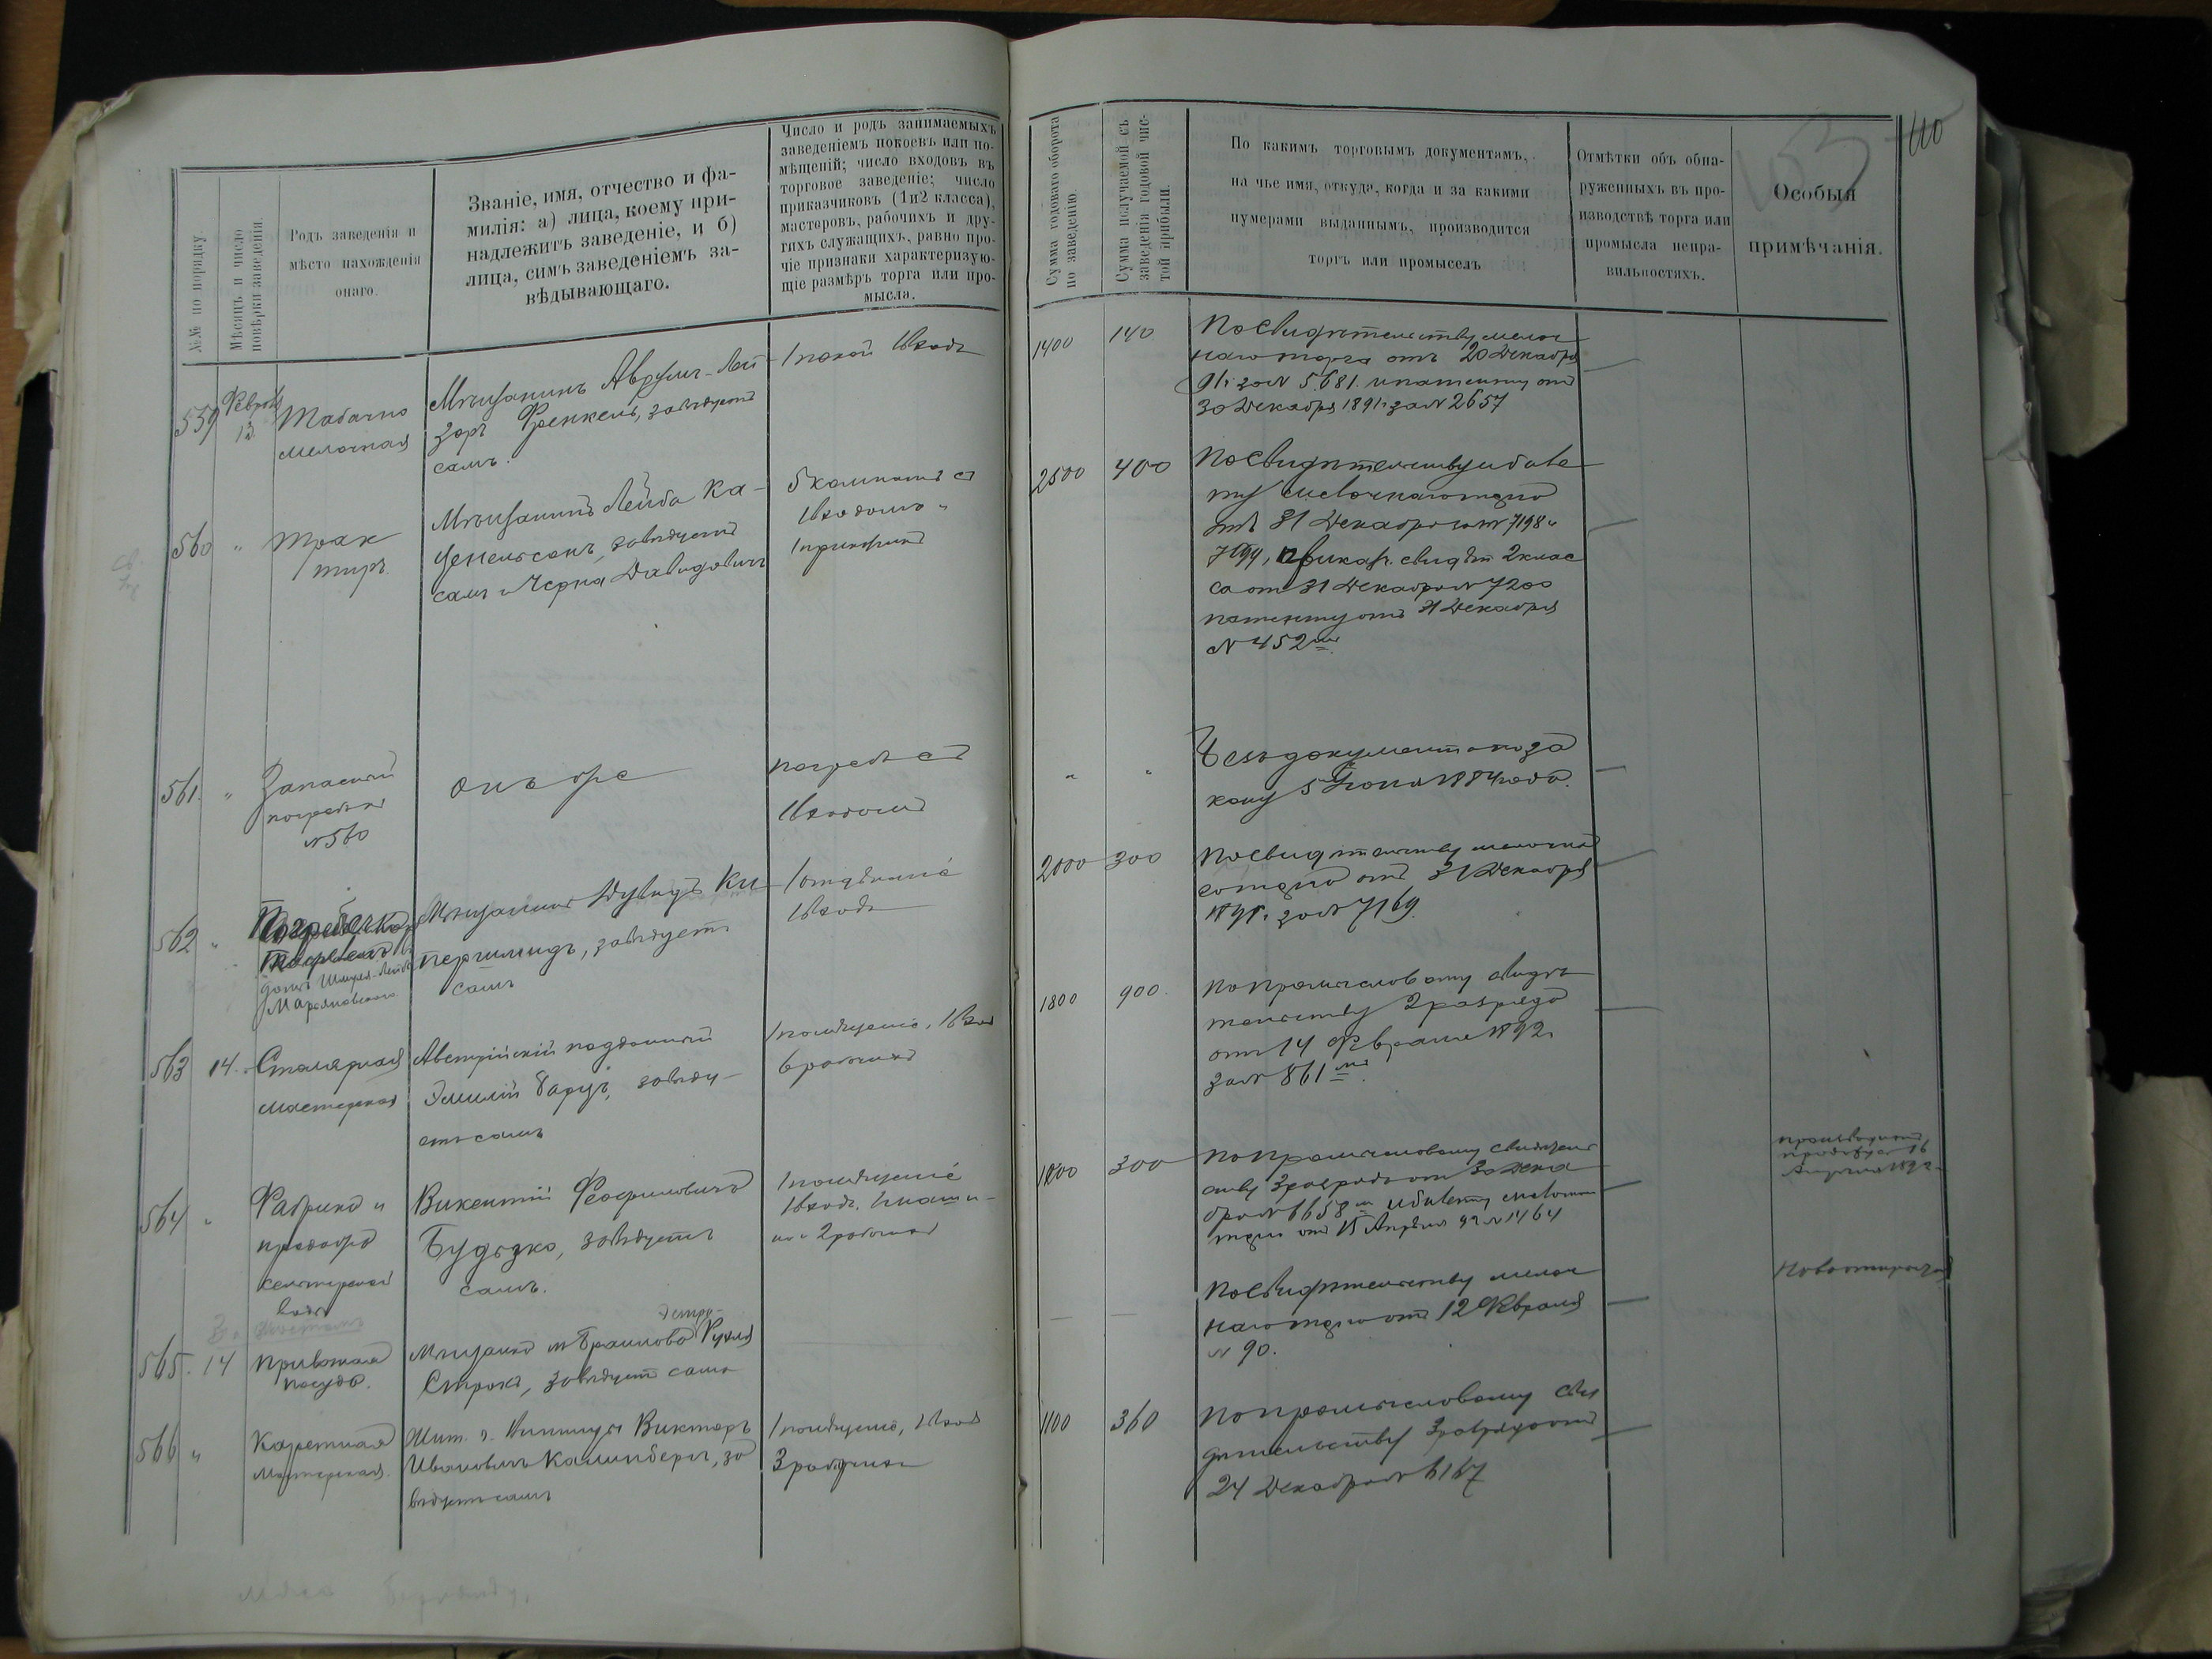 №№ по порядку.
Мѣсяцъ и число
повѣрки заведенія
Родъ заведенія и
мѣсто нахожденія
онаго.
Званіе, имя, отчество и фа-
милія: а) лица, коему при-
надлежитъ заведеніе, и б)
лица, симъ заведеніемъ за-
вѣдывающаго.
Число и родъ занимаемыхъ
заведеніемъ покоевъ или по-
мѣщеній; число входовъ въ
торговое заведеніе; число
приказчиковъ (1и2 класса),
мастеровъ, рабочихъ и дру-
гихъ служащихъ, равно про-
чіе признаки характеризую-
щіе размѣръ торга или про-
мысла.
Сумма годоваго оборота
по заведенію.
Сумма получаемой съ
заведенія годовой чис-
той прибыли.
По какимъ торговымъ документамъ,
на чье имя, откуда, когда и за какими
нумерами выданнымъ, производится
торгъ или промыселъ
Отмѣтки объ обна-
руженныхъ въ про-
изводствѣ торга или
промысла непра-
вильностяхъ.
Особыя
примѣчанія.
110
559
13
Табачно
мелочная
Мѣщанинъ Аврумъ-Лей
зоръ Френкель, завѣдуетъ
самъ.
1 покой 1 входъ
1400
140
По свидѣтельству мелоч
наго торга отъ 20 Декабря
91 г. за № 5681. и патенту отъ
30 Декабря 1891 г за № 2657
560
"
Трак
тиръ.
Мѣщанинъ Лейба Ка-
ценельсонъ, завѣдуетъ
самъ и Черна Давидовичъ
5 комнатъ съ
1 входомъ
2500
400
По свидѣтельству и биле
ту мелочнаго торга
отъ 31 Декабря за № 7198 и
7199, приказ. свидѣт 2 клас
са отъ 31 Декабря № 7200
патенту отъ 31 Декабря
№ 452
561.
"
Запасный
погребъ
№ 560
Онъ же
погребъ съ
1 входомъ
"
"
Безъ документа по за
кону 5 Іюня 1884 года.
562
"
домъ Шмуля-Лейбы
Мѣщанинъ Дувидъ Ки
першмидъ, завѣдуетъ
самъ
1 отдѣленіе
1 входъ
2000
300
По свидѣтельству мелочна
го торга отъ 31 Декабря
1891 г. за № 7169.
563
14.
Столярная
мастерская
Австрійскій подданный
Эмилій Баругъ, завѣду-
етъ самъ
1 помѣщеніе, 1 входъ
6 рабочихъ
1800
900
По промысловому свидѣ
тельству 2 разряда
отъ 14 Февраля 1892 г
за № 861
564
"
Фабрика и
продажа
сельтерской
воды
Викентій Феофиловичъ
Будзко, завѣдуетъ
самъ.
1 помѣщеніе
1 входъ, 1 маши-
на и 2 рабочихъ
300
По промысловому свидѣтель
ству 3 разряда отъ 30 Дека
бря № 6658 и билету мелочнаго
торга отъ 15 Апрѣля 92 № 1464
565.
14
посуда.
Мѣщанка м. Браилова Рухля
Строкъ, завѣдуетъ сама
По свидѣтельству мелоч
наго торга отъ 12 Февраля
№ 90.
566
"
Каретная
мастерская.
Жит. г. Винницы Викторъ
Ивановичъ Калинбергъ, за
вѣдуетъ самъ
1 помѣщеніе, 1 входъ
3 рабочихъ
1100
360
По промысловому сви
дѣтельству 3 разряда отъ
24 Декабря № 6167